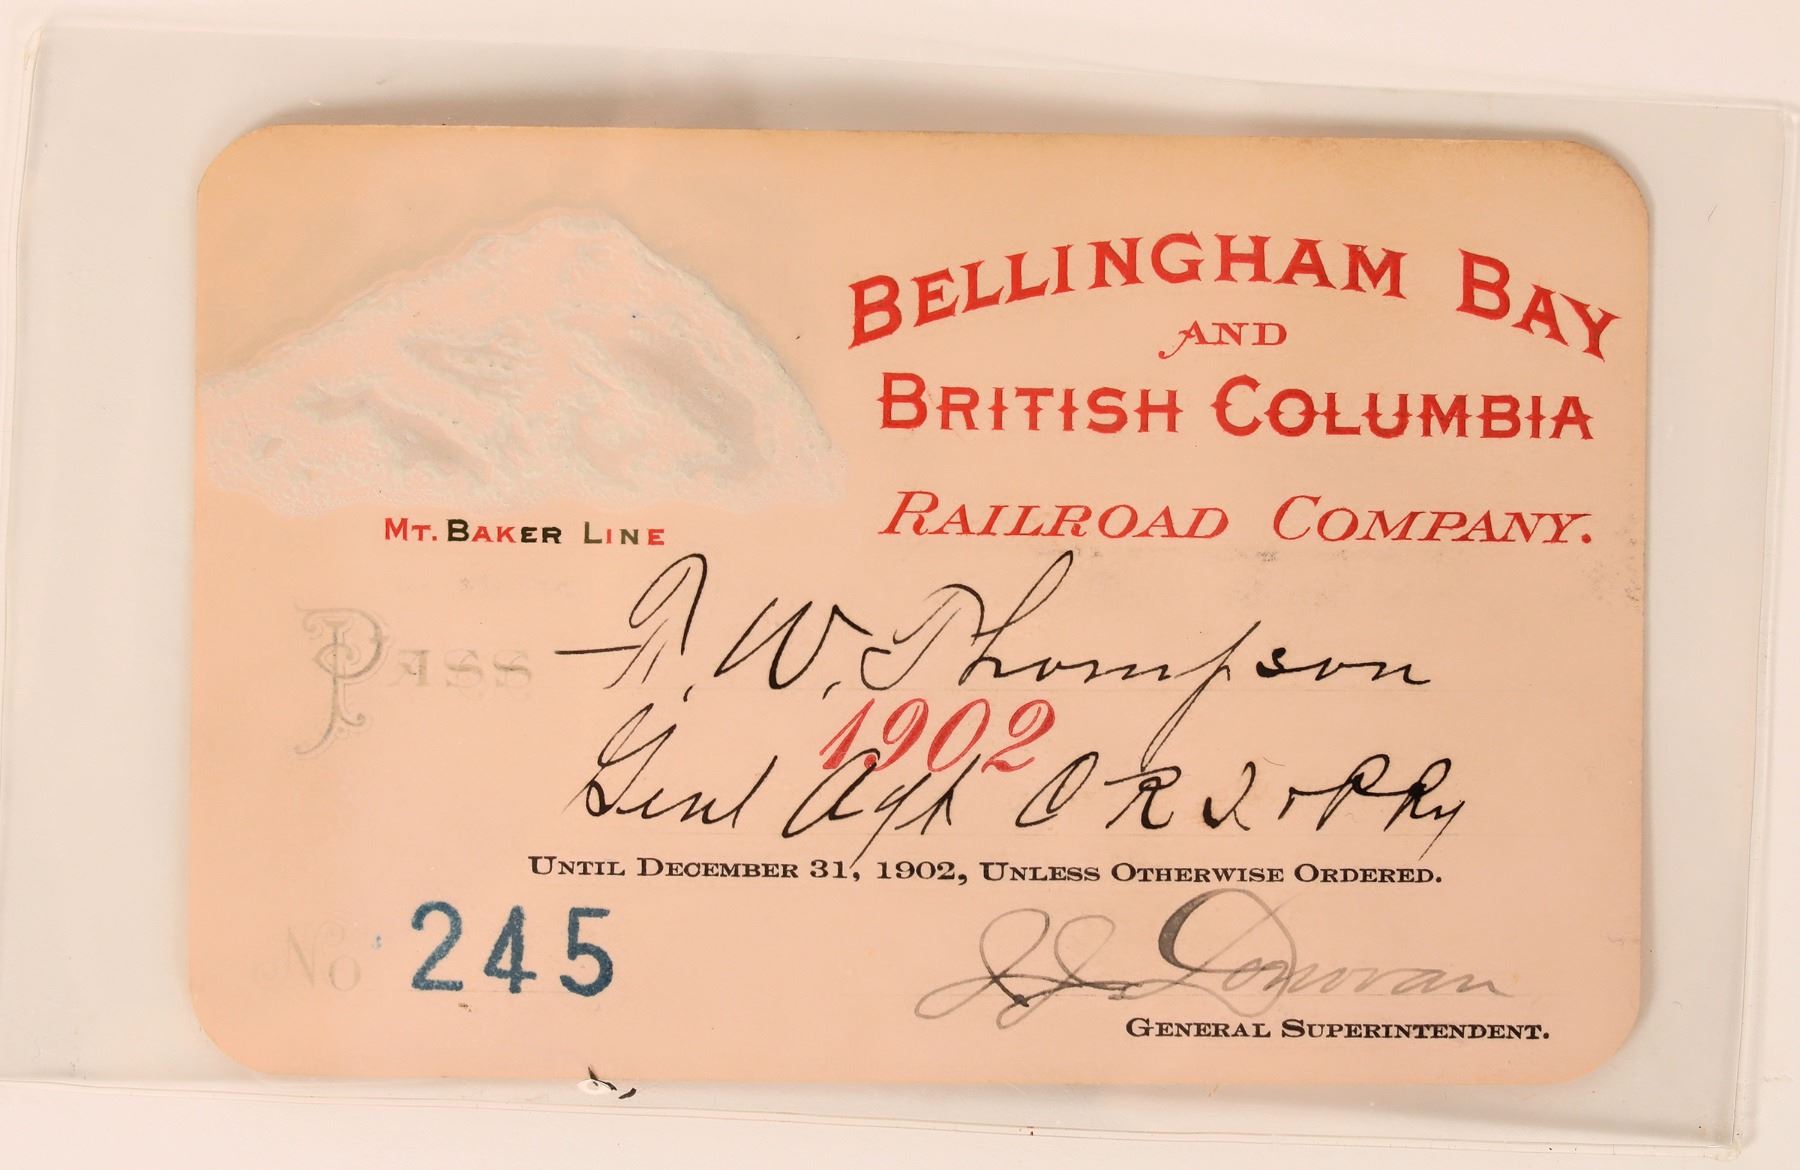 BELLINGHAM BAY
AND
BRITISH COLUMBIA
RAILROAD COMPANY.
MT. BAKER LINE
PASS F. W. Thompson
1902
Genl Agt C R I & P Ry
UNTIL DECEMBER 31, 1902, UNLESS OTHERWISE ORDERED.
No 245
J. J. Donovan
GENERAL SUPERINTENDENT.